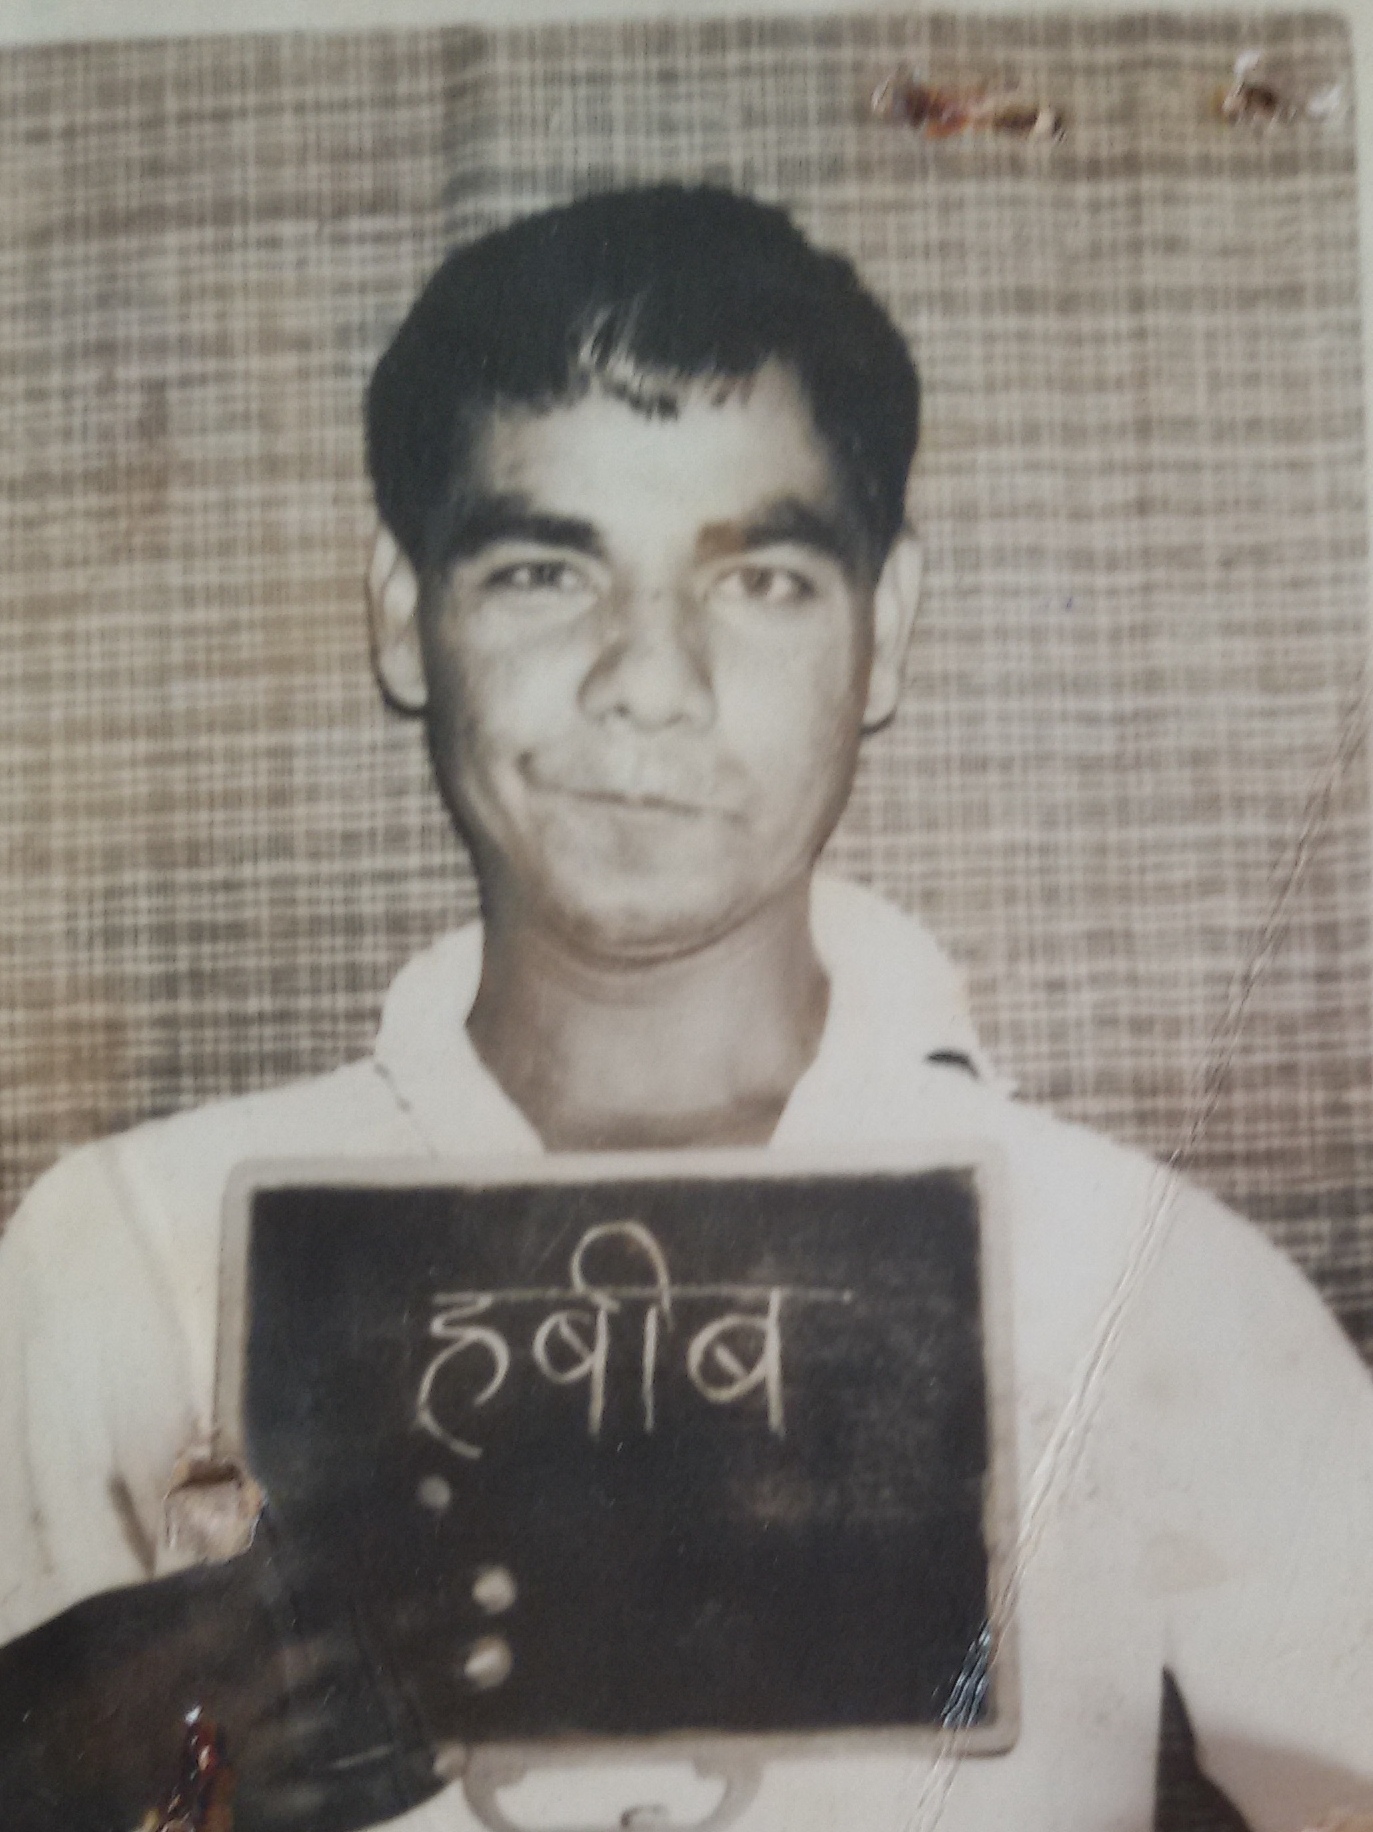 हबीब